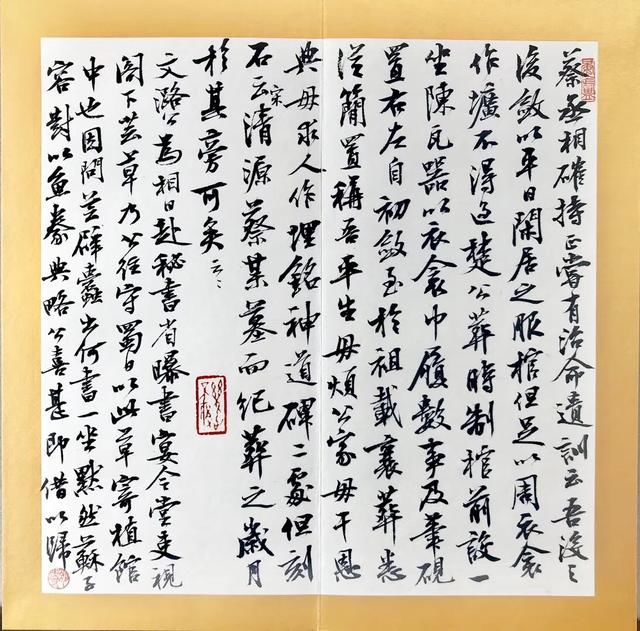 蔡丞相確持正嘗有治命遺訓云吾沒之
後斂以平日閑居之服棺但足以周衣衾
作壙不得過楚公葬時制棺前設一
坐陳瓦器以衣衾巾履數事及筆硯
置右左自初斂至於祖載襄葬悉
從簡置稱吾平生毋煩公家毋干恩
典毋求人作埋銘神道碑二處但刻
石云宋清源蔡某墓而紀葬之歲月
於其旁可矣云云
文潞公為相日赴秘書省曝書宴令堂吏視
閣下芸草乃公往守蜀日以此草寄植館
中也因問芸辟蠹出何書一坐默然蘇子
容對以魚豢典略公喜甚即借以歸